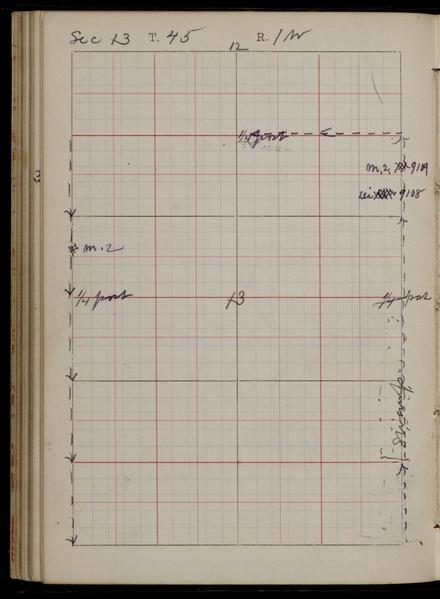 Sec 13 T. 45 R. 1 W
12
1/4 post
m. 2. 9109
9108
m. 2
1/4 post 13 1/4 post